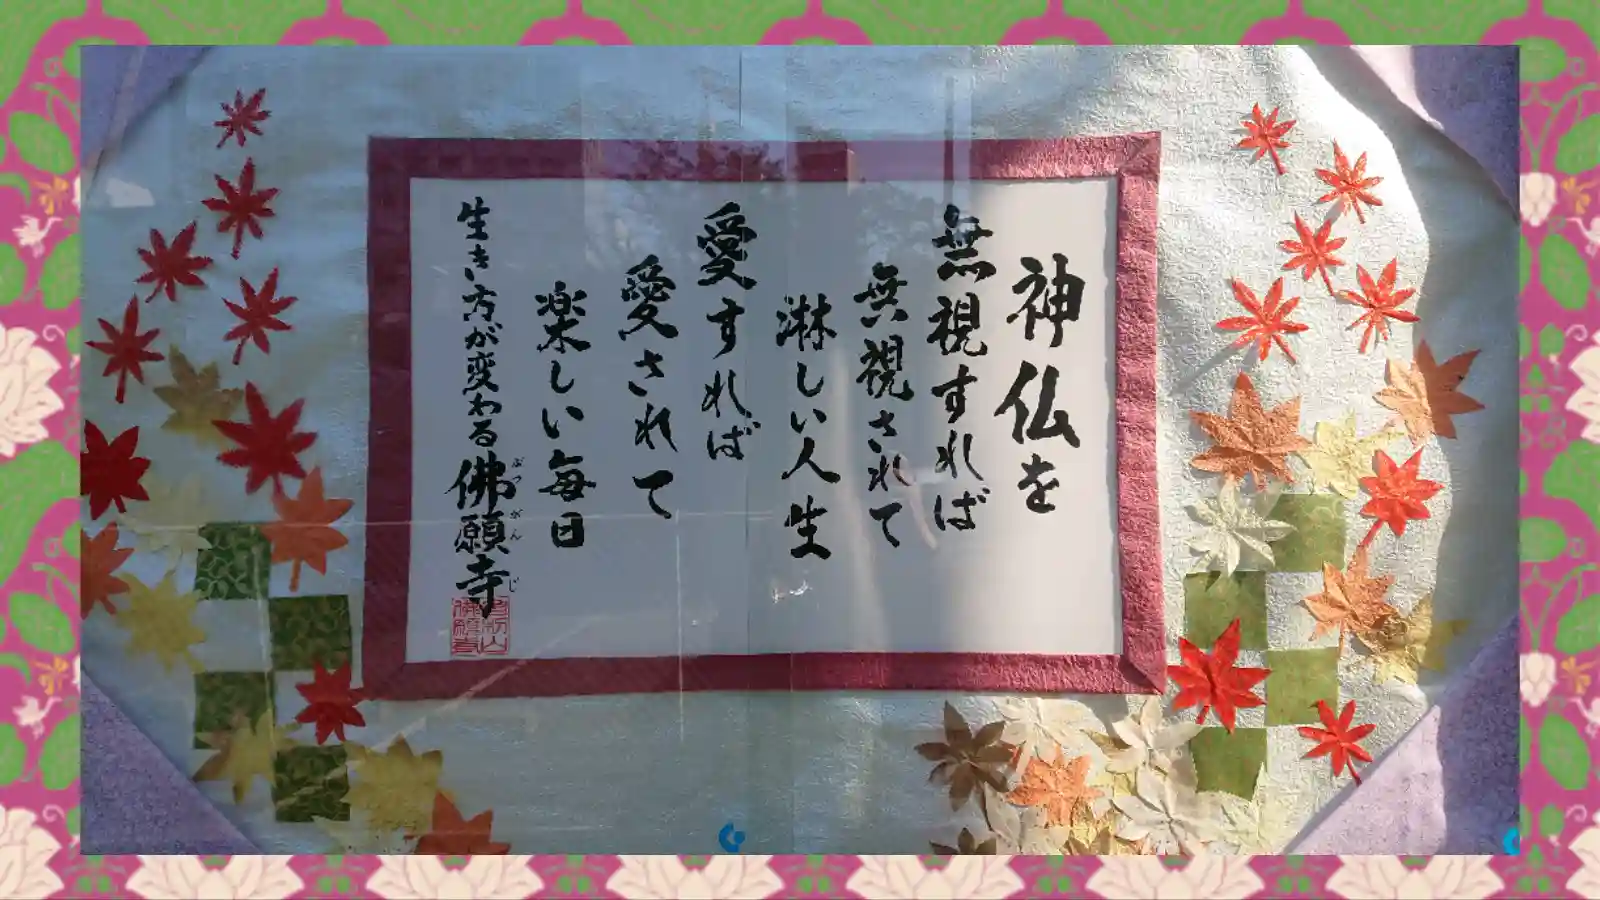 神仏を
無視すれば
無視されて
淋しい人生
愛すれば
愛されて
楽しい毎日
生き方が変わる佛願寺
ぶつがんじ